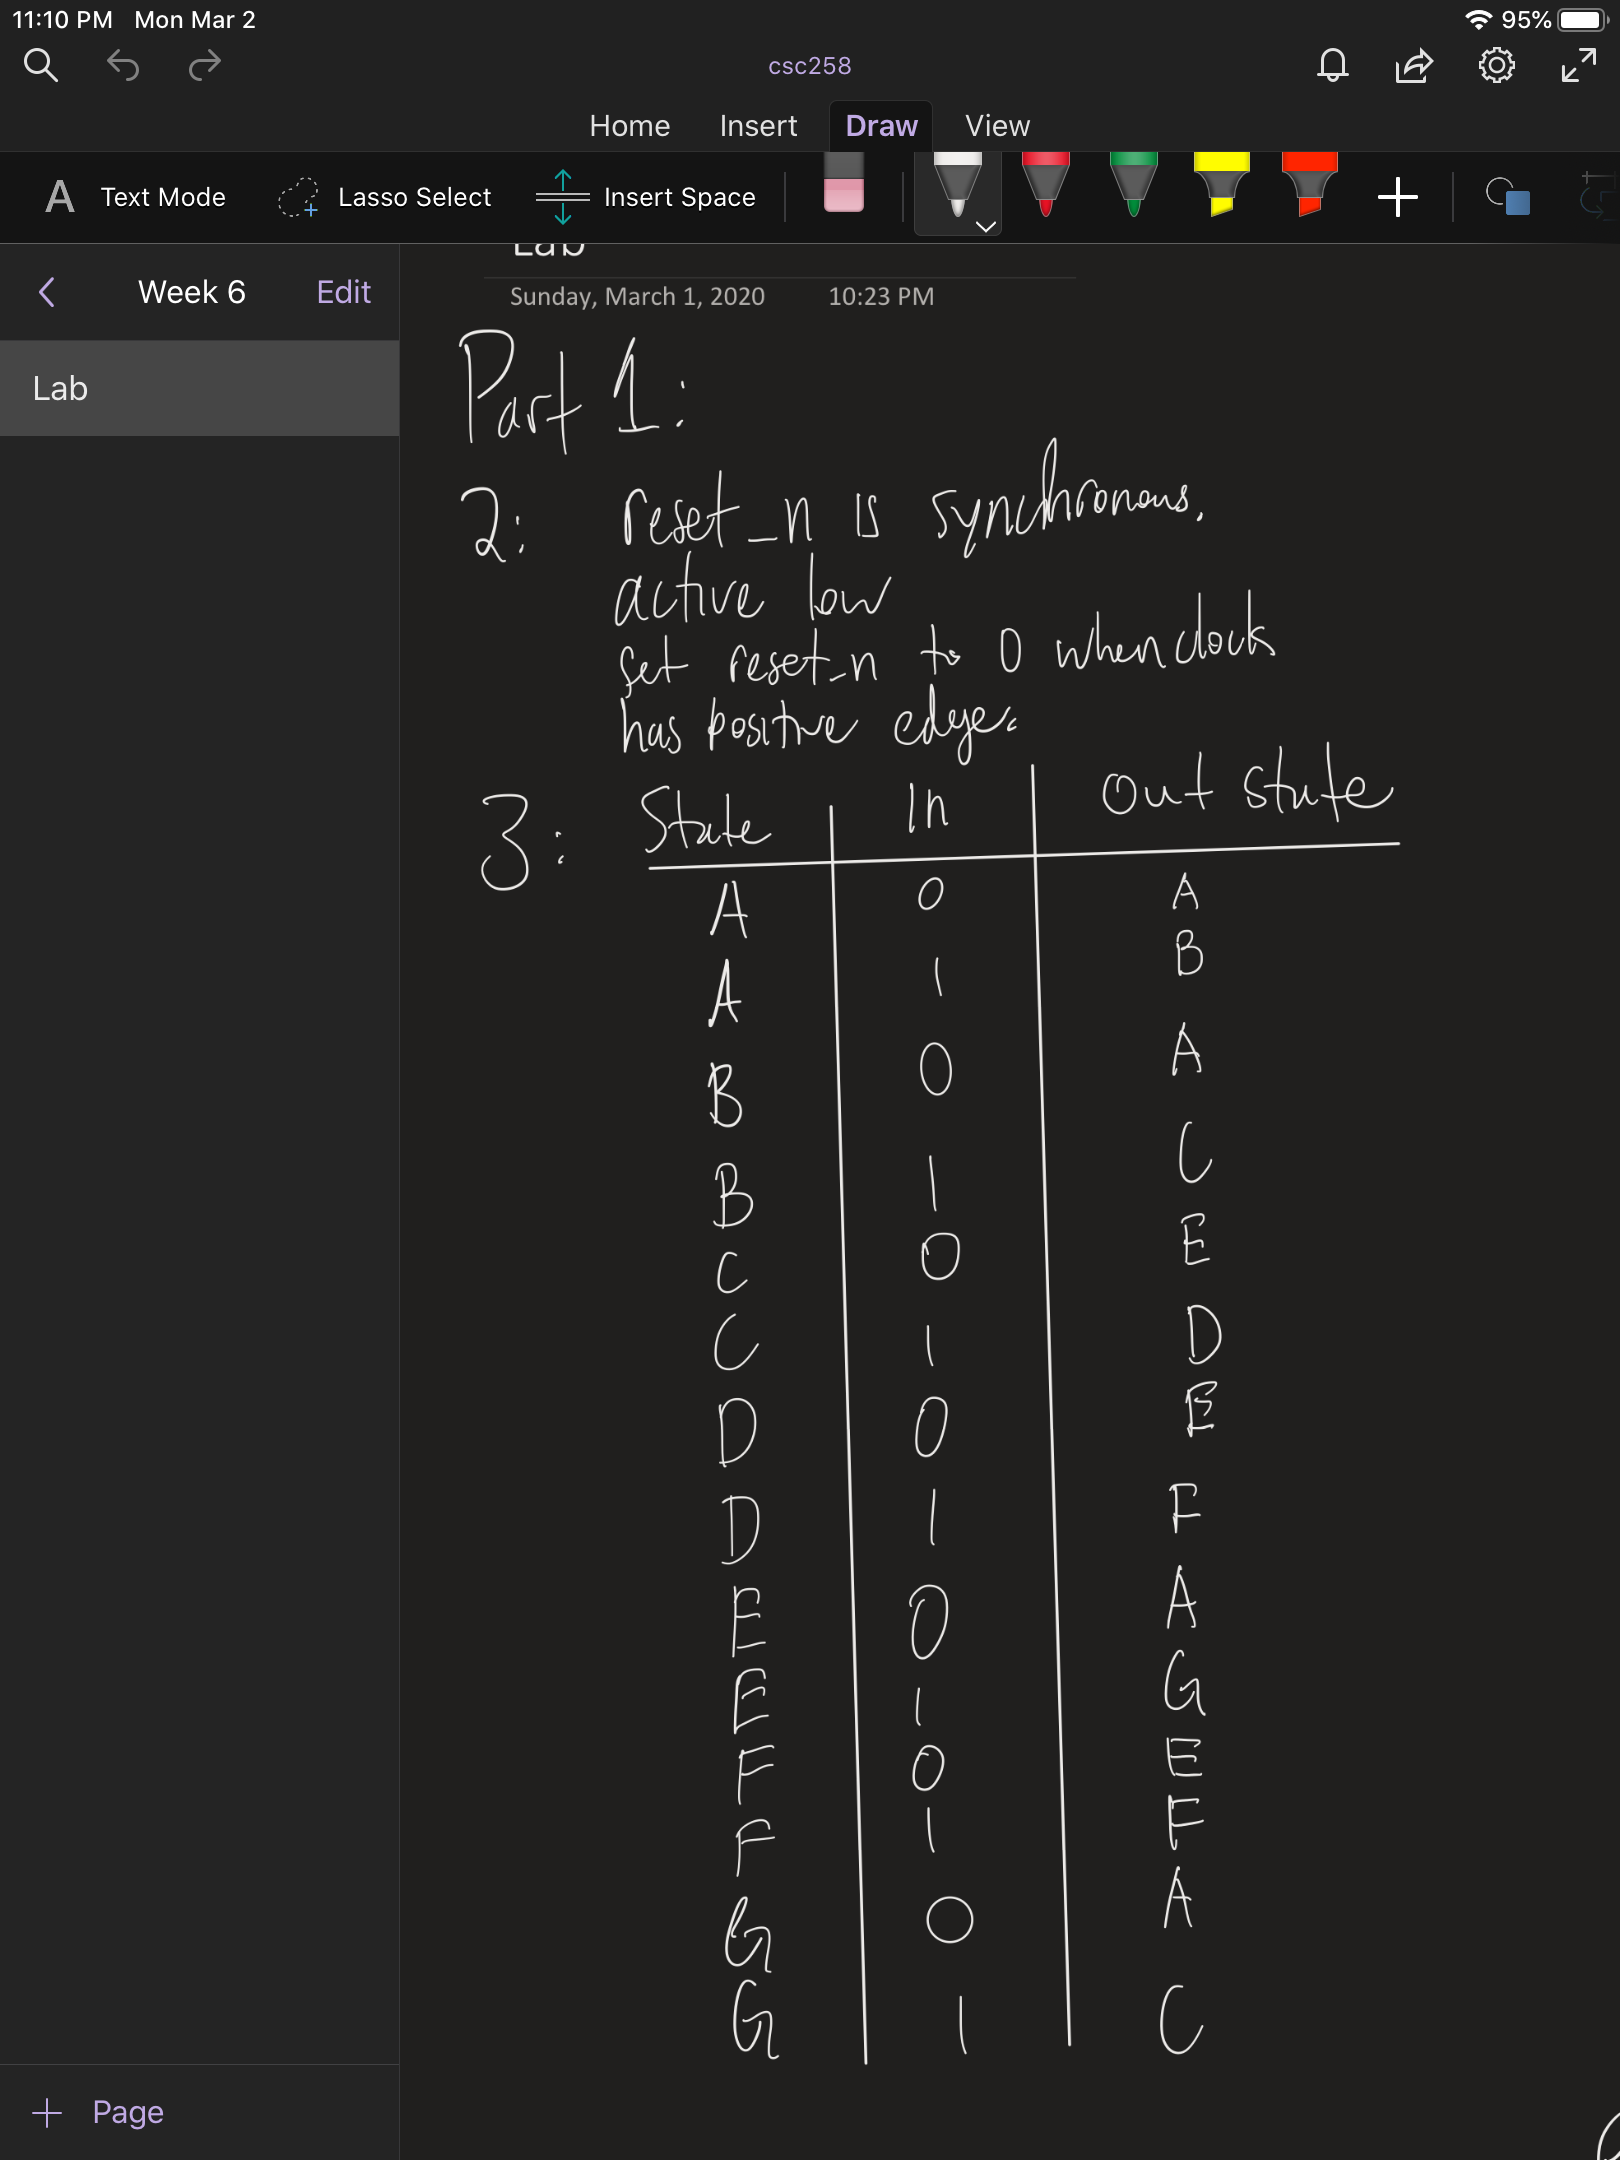 11:10 PM Mon Mar 2 95%
csc258
Home Insert Draw View
A Text Mode Lasso Select Insert Space
Week 6 Edit
Lab
Lab
Sunday, March 1, 2020 10:23 PM
Part 1:
2: reset_n is synchronous.
active low
set reset_n to 0 when clocks
has positive edge.
3: State In Out state
A 0 A
A 1 B
B 0 A
B 1 C
C 0 E
C 1 D
D 0 E
D 1 F
E 0 A
E 1 G
F 0 E
F 1 F
G 0 A
G 1 C
+ Page